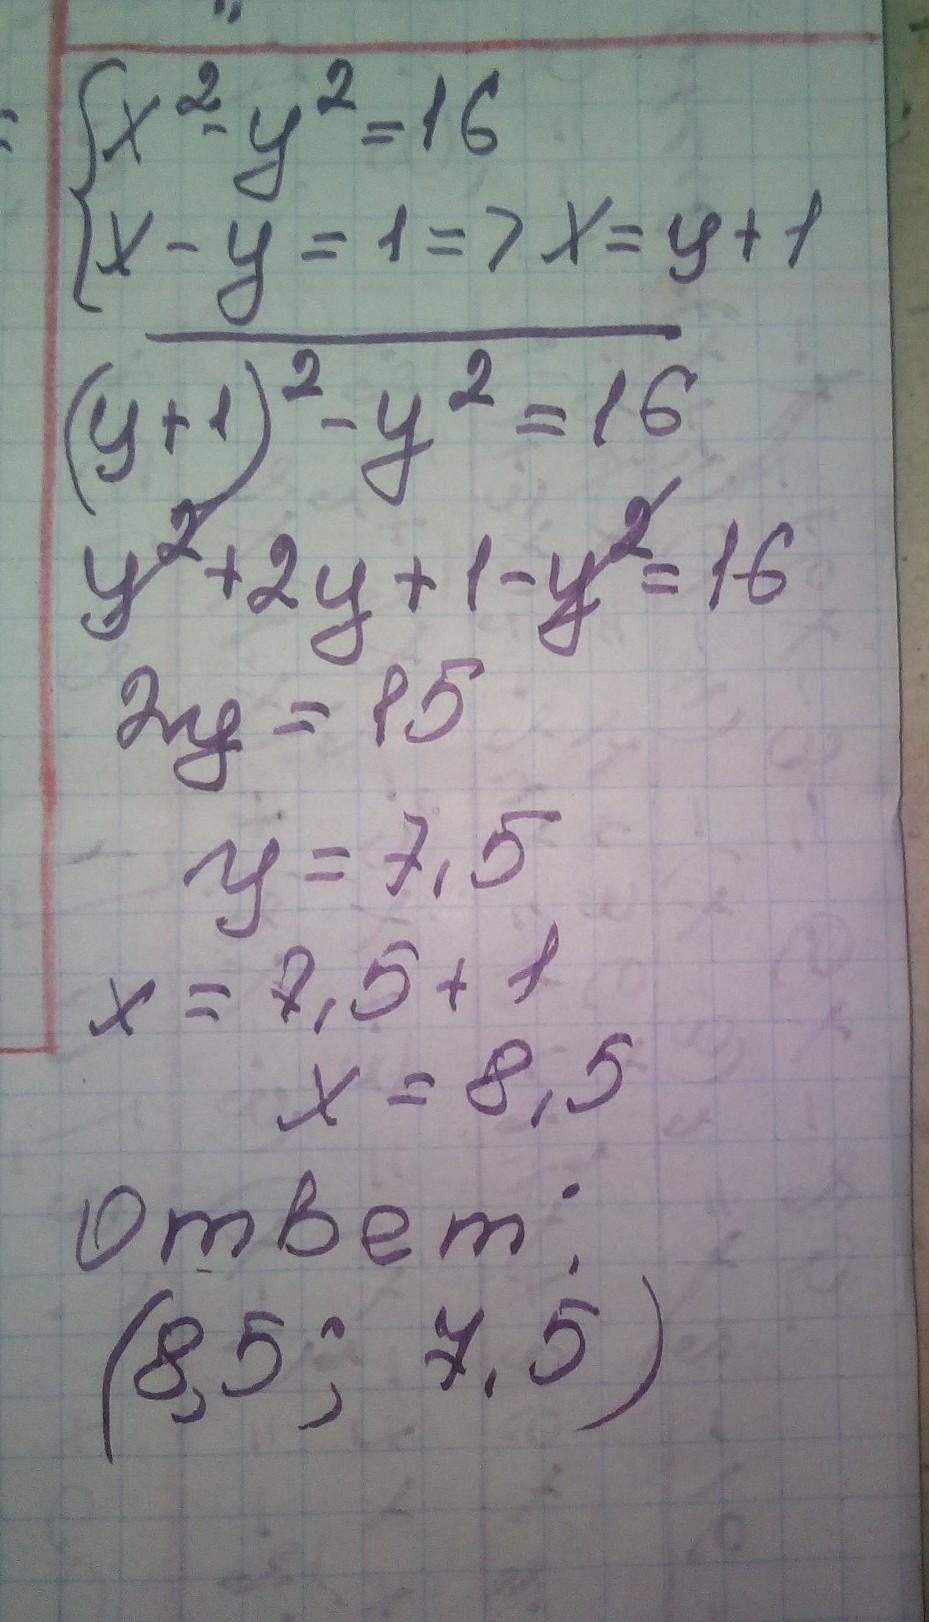 {x² - y² = 16
{x - y = 1 => x = y + 1
(y+1)² - y² = 16
y² + 2y + 1 - y² = 16
2y = 15
y = 7,5
x = 7,5 + 1
x = 8,5
Ответ:
(8,5; 7,5)